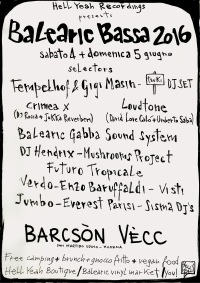 Hell Yeah Recordings
presents
Balearic Bassa 2016
sabato 4 + domenica 5 giugno
selectors
Tempelhof & Gigi Masin - DJ SET
Crimea X
Loudtone
(DJ Rocca + Jukka Reverberi)
Balearic Gabba Sound System
DJ Hendrix - Mushrooms Project
Futuro Tropicale
Verdo - Enzo Baruffaldi - Visti
Jumbo - Everest Parisi - Sisma DJ's
BARCSÒN VÈCC
Free camping + brunch + gnocco fritto + vegan food
Hell Yeah Boutique / Balearic vinyl market / You!